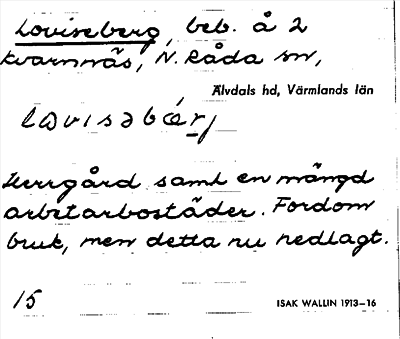 Loviseberg, beb. å 2
Kvarnnäs, N. Råda sn,
Älvdals hd, Värmlands län
lovisəbærj
Herrgård samt en mängd
arbetarbostäder. Fordom
bruk, men detta nu nedlagt.
15
ISAK WALLIN 1913–16